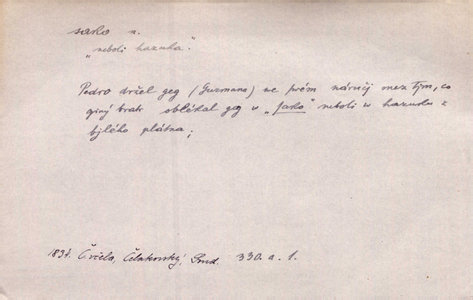 sako n.
"neboli kazuka."
Pedro držel geg (Guzmana) ve svém náručj mezi tjm, co
giný brak oblékal geg w "sako" neboli w kazuku z
bjlého plátna;
1834. Č. včela, Čelakovský, 330. a. 1.